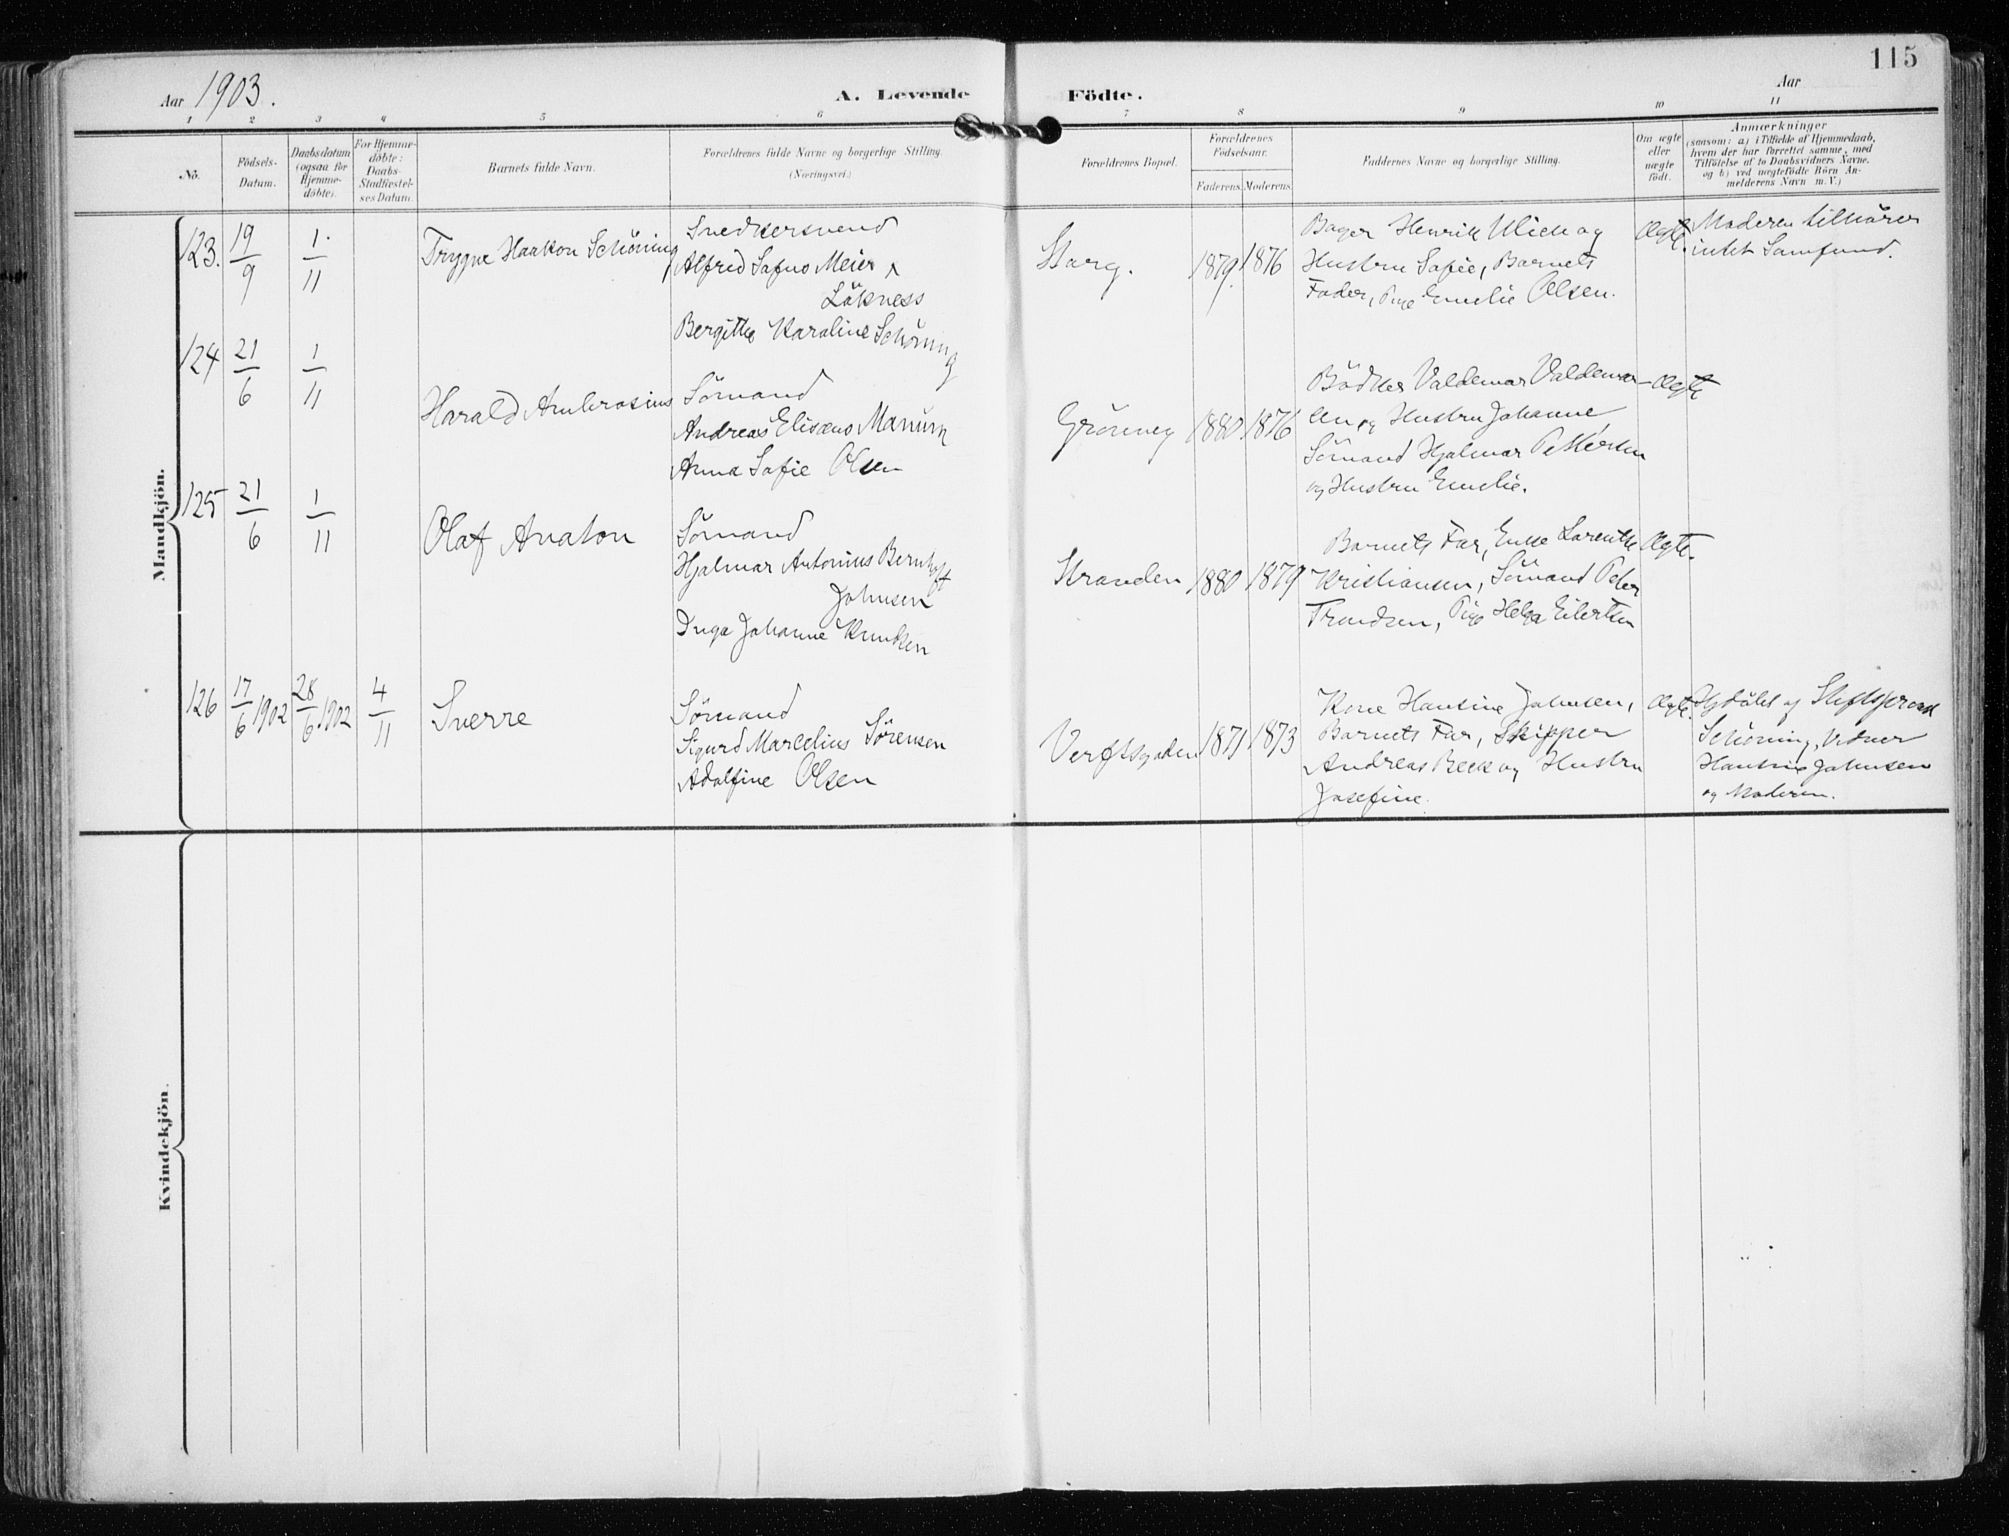 115
Aar 1903.
A. Levende
Födte.
Aar
1 2 3 4 5 6 7 8 9 10 11
No.
Födsels-
Datum.
Daabsdatum
(ogsaa for
Hjemme-
döbte).
For Hjemme-
døbte:
Daabs-
Stadfæstel-
ses Datum.
Barnets fulde Navn.
Forældrenes fulde Navne og borgerlige Stilling.
(Næringsvei.)
Forældrenes Bopæl.
Forældrenes
Födselsaar.
Faderens. Moderens.
Faddernes Navne og borgerlige Stilling.
Om ægte
eller
uægte
födt.
Anmærkninger
(saasom: a) i Tilfælde af Hjemmedaab,
hvem der har forrettet samme, med
Tilföielse af to Daabsvidners Navne.
og b) ved uægtefödte Börn An-
melderens Navn m. V.)
Mandkjön.
123. 19/9 1/11
Trygve Haakon Schöning
Snedkersvend
Alfred Safus Meier
Lökness
Bergithe Karoline Schöning
Storg.
1879. 1876
Bager Henrik Ulich og
Hustru Sofie, Barnets
Fader, Pige Emelie Olsen.
Ægte.
Moderen tilhörer
intet Samfund.
124 21/6 1/11
Harald Ambrosius
Sömand
Andreas Elisæus Manum
Anna Sofie Olsen
Grönneg
1880 1876
Bödker Valdemar Valdemar-
sen og Hustru Johanne
Sömand Hjalmar Pettersen
og Hustru Emelie.
Ægte
125 21/6 1/11
Olaf Anaton
Sömand
Hjalmar Antonius Bernhoft
Johnsen
Inga Johanne Knudsen
Stranden
1880 1879
Barnets Far, Enke Lorentze
Kristiansen, Sömand Peder
Trondsen, Pige Helga Eilertsen
Ægte.
126 17/6 1902 28/6 1902 4/11
Sverre
Sömand
Sigurd Marcelius Sörensen
Adolfine Olsen
Verftsgaden
1871 1873
Kone Hansine Johnsen,
Barnets Far, Skipper
Andreas Beck og Hustru
Josefine.
Ægte.
Hjdöbt af Stiftsprovst
Schöning, Vidner
Hansine Johnsen
og Moderen.
Kvindekjön.